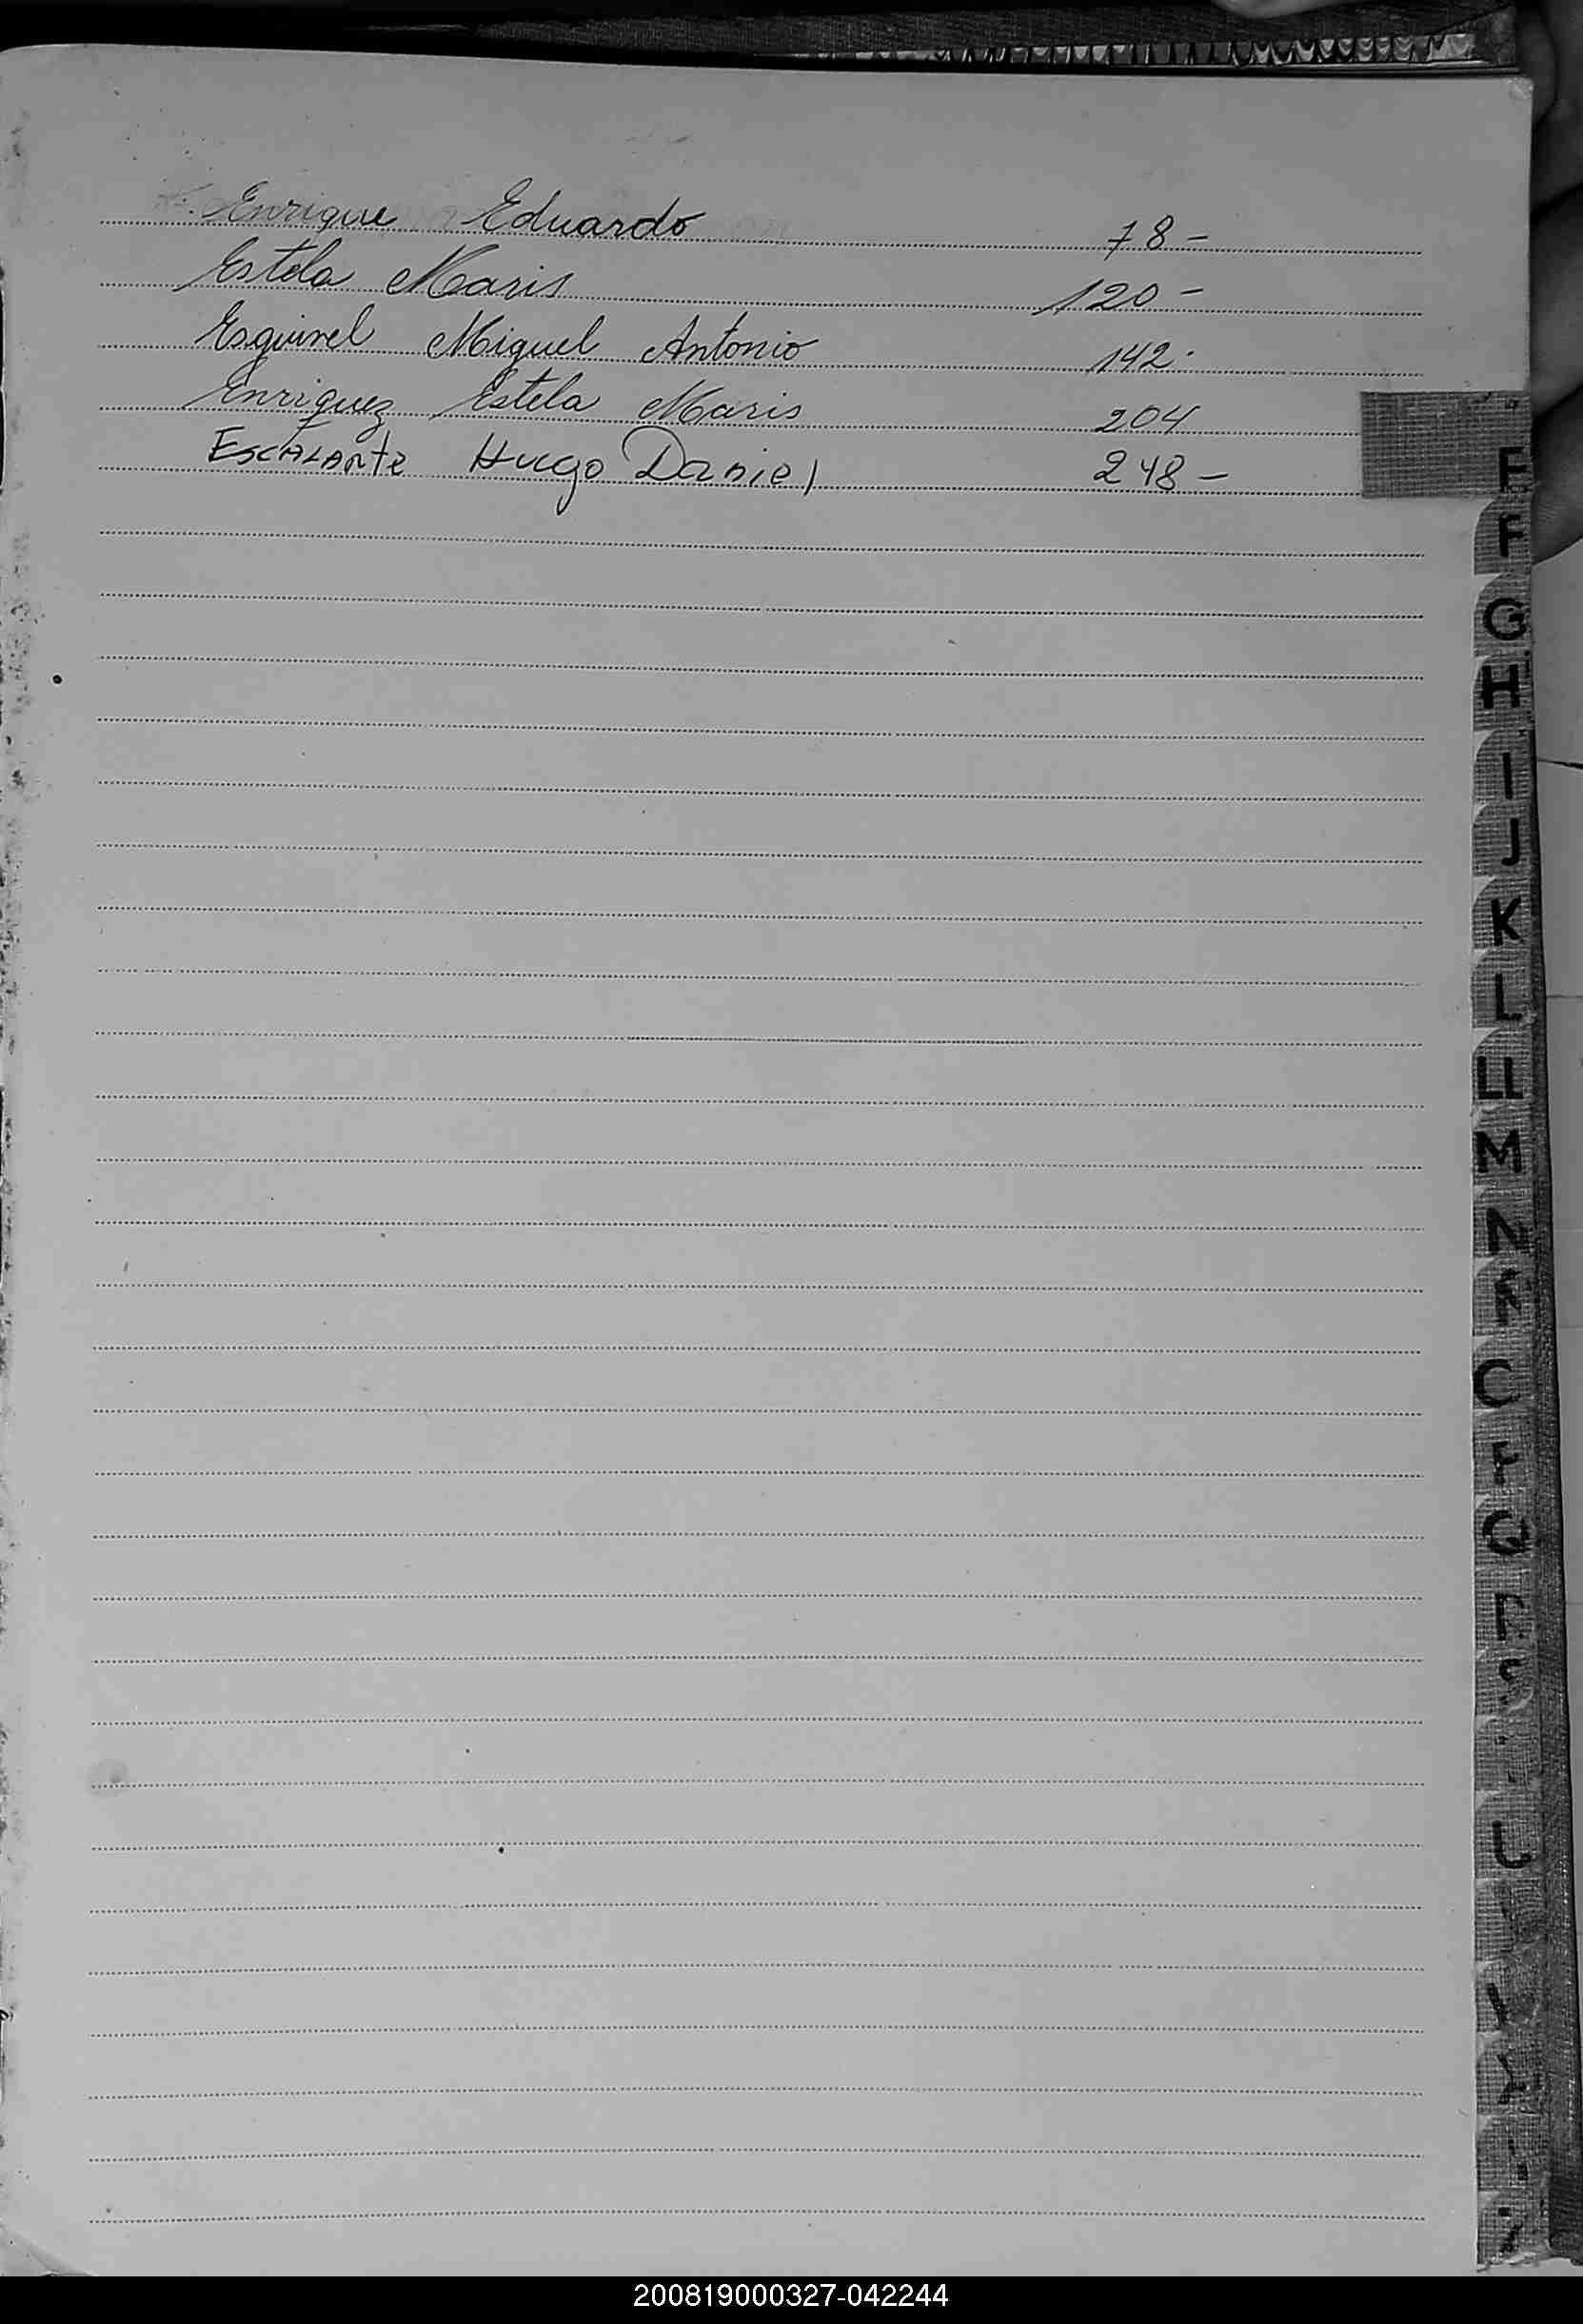 Enrique Eduardo 78-
Estela Maris 120-
Esquivel Miguel Antonio 142.
Enriquez Estela Maris 204
ESCALANTE Hugo Daniel 248-
E
F
G
H
I
J
K
L
LL
M
N
Ñ
O
P
Q
R
S
U
200819000327-042244